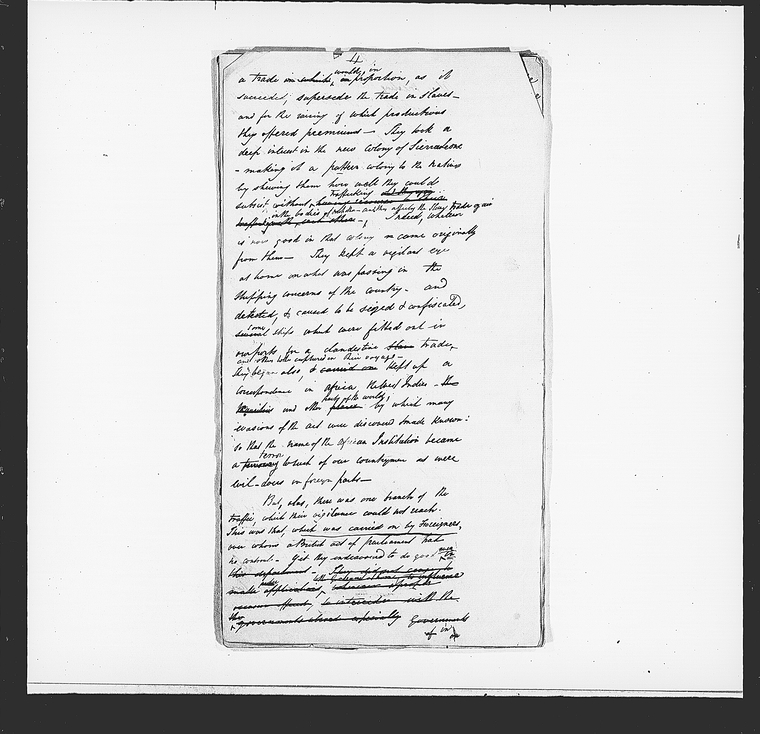 4
a trade which would, in proportion, as it
succeeded, supersede the trade in Slaves—
and for the raising of which productions
they offered premiums — They took a
deep interest in the new Colony of Sierra Leone
- making it a colony to the Natives
by shewing them how well they could
trafficking
subsist without
in the bodies of each other — Slave Trade again
Indeed, whatever
is now good in that colony came originally
from them — They kept a vigilant eye
at home on what was passing in the
shipping concerns of the Country - and
detected, & caused to be seized & confiscated,
some
several ships which were fitted out in
our ports for a clandestine Slave trade,
and others were captured in their voyage —
They began also, & carried on kept up a
Correspondence in Africa, the West Indies - the
parts of the world,
Mauritius and other places by which many
evasions of the act were discovered & made known:
so that the name of the African Institution became
terror
a to such of our countrymen as were
evil-doers in foreign parts —
But, alas, there was one branch of the
traffic, which their vigilance could not reach.
This was that, which was carried on by Foreigners,
over whom a British act of parliament had
no control - Yet they endeavoured to do good even
in
this department - They did not cease to
make applications,
to influence
to intercede with the
the
governments abroad especially Governments
of in